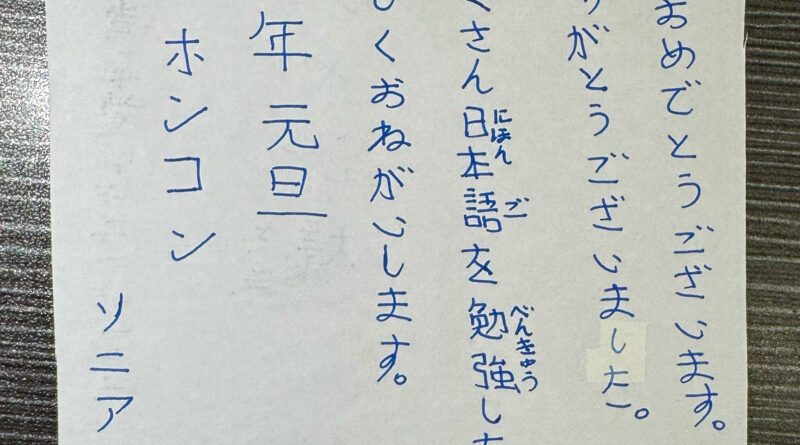 おめでとうございます。
がとうございました。
くさん日本語を勉強し
にほんご
べんきゅう
くおねがいします。
年 元旦
ホンコン
ソニア